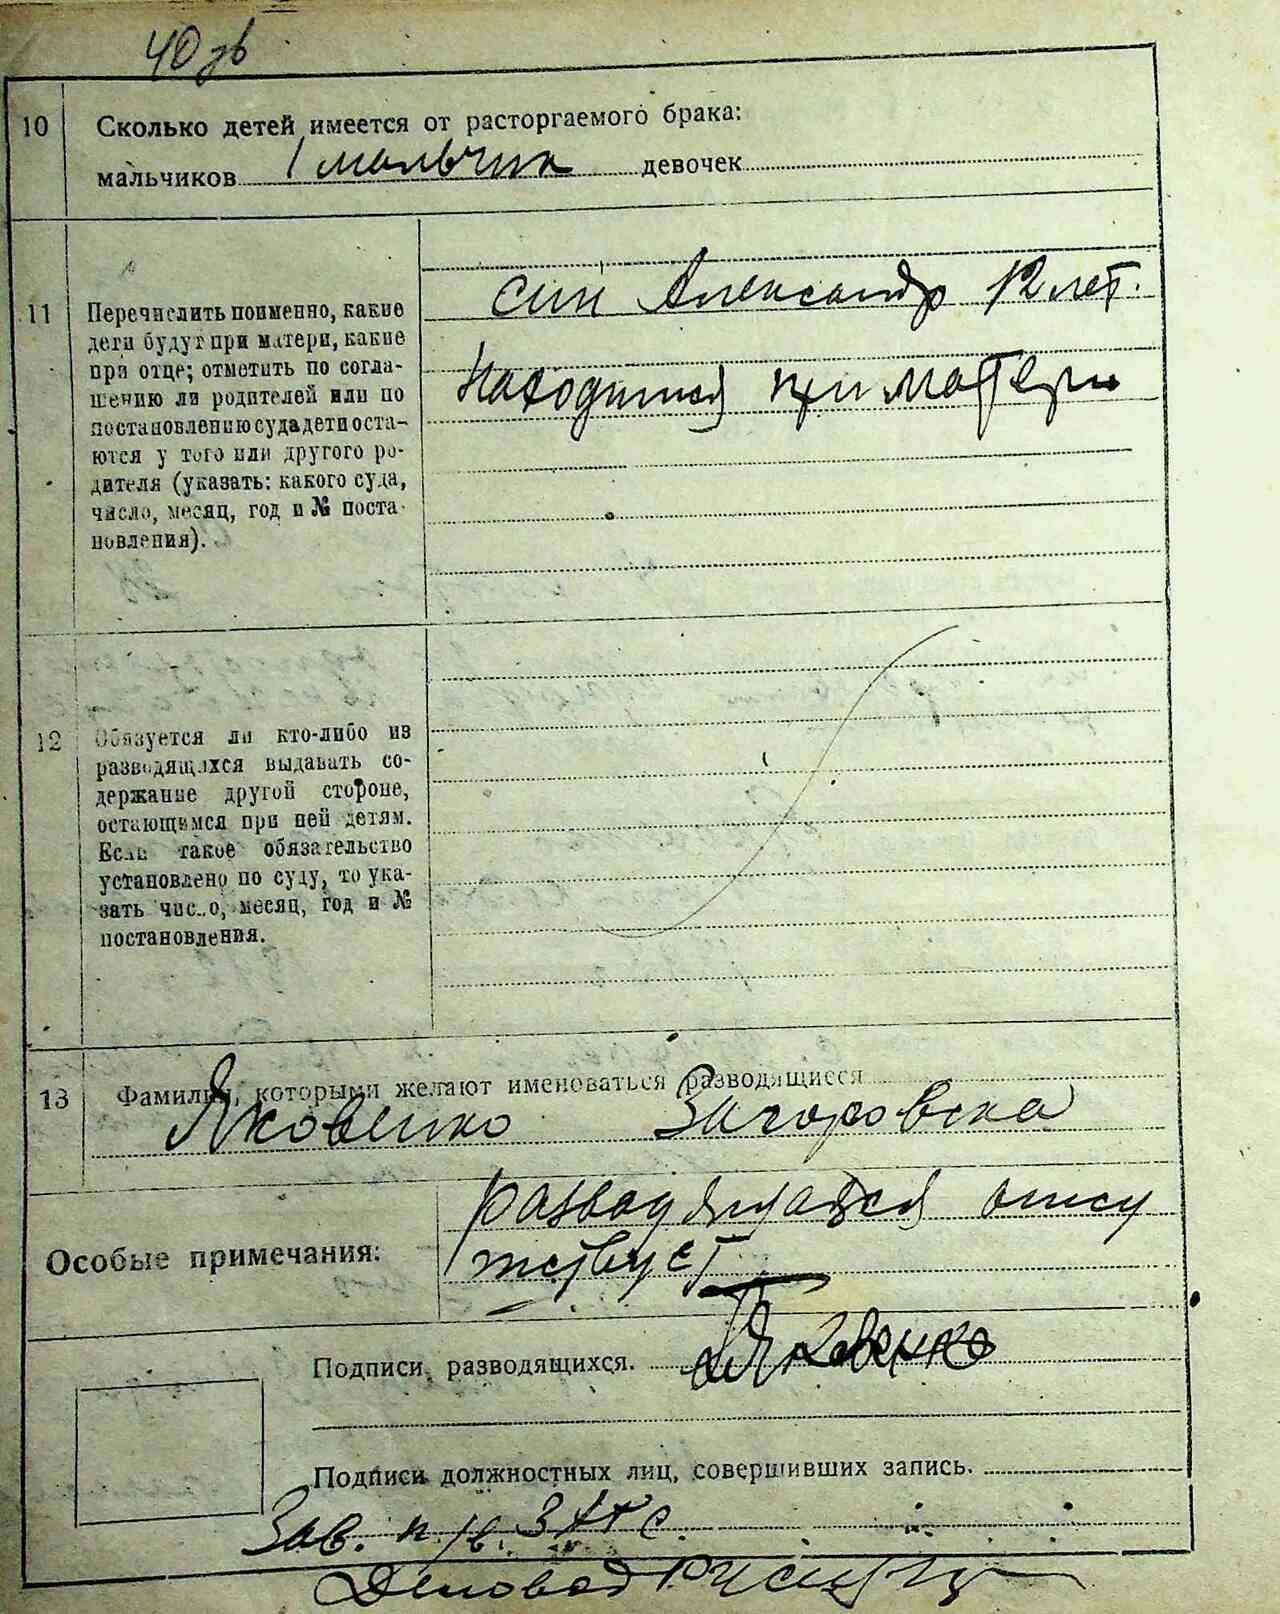 40 зв
10 Сколько детей имеется от расторгаемого брака:
мальчиков 1 мальчик девочек
11 Перечислить поименно, какие
дети будут при матери, какие
при отце; отметить по согла-
шению ли родителей или по
постановлению суда дети оста-
ются у того или другого ро-
дителя (указать: какого суда,
число, месяц, год и № поста-
новления).
син Александр 12 лет.
находится при матери
12 Обязуется ли кто-либо из
разводящихся выдавать со-
держание другой стороне,
остающимся при ней детям.
Если такое обязательство
установлено по суду, то ука-
зать число, месяц, год и №
постановления.
13 Фамилии, которыми желают именоваться разводящиеся
Яковенко Загоровска
Особые примечания:
Подписи разводящихся. Яковенко
Подписи должностных лиц, совершивших запись.
Зав.